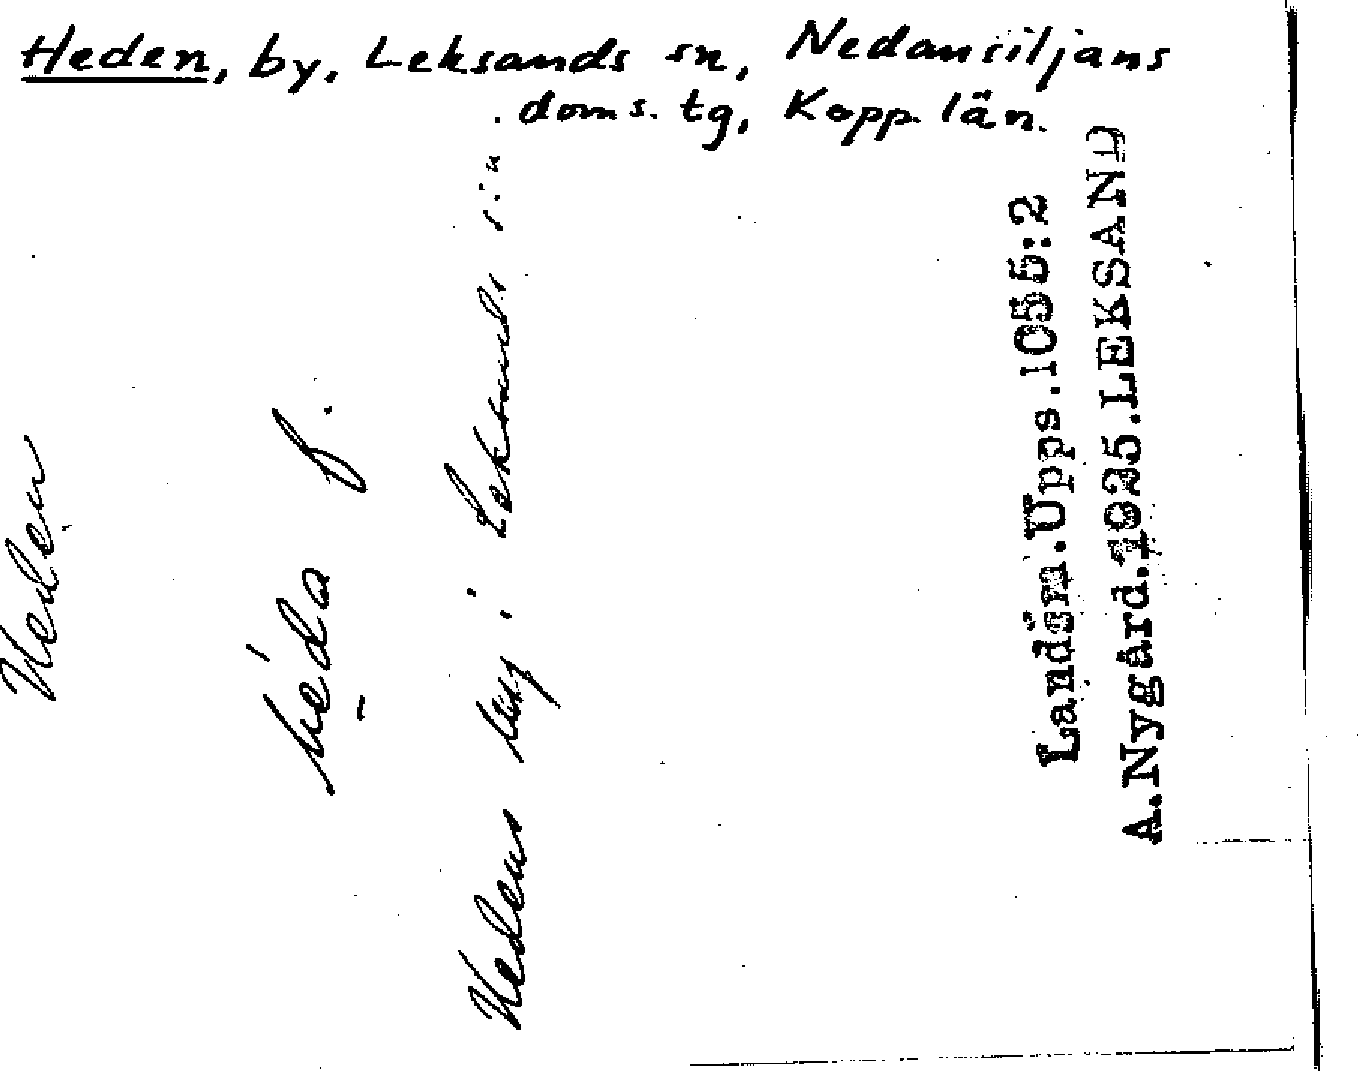 Heden, by, Leksands sn, Nedansiljans
doms. tg, Kopp. län.
Heden
héda f.
Hedens by i Leksands
Landsm.Upps.1055:2
A.Nygård.1925.LEKSAND